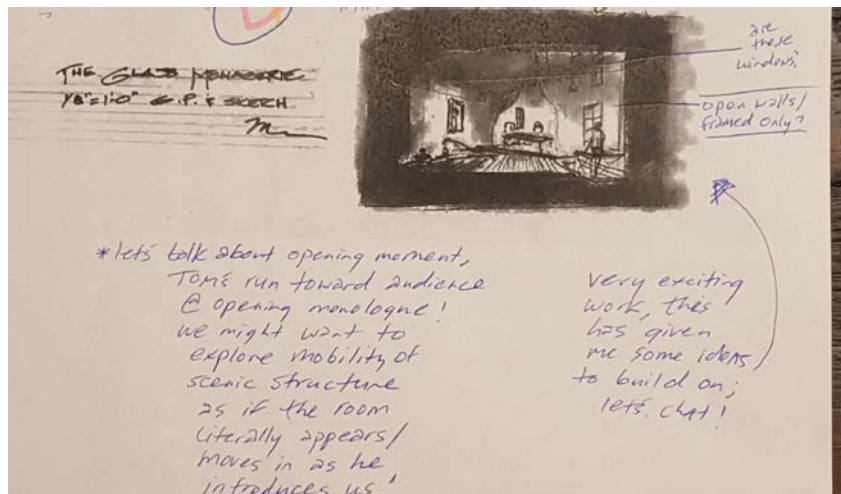 THE GLASS MENAGERIE
1/8"=1'-0" G.P. & SKETCH
are
these
windows?
open walls/
framed only?
*lets talk about opening moment,
TOM's run toward audience
@ opening monologue!
we might want to
explore mobility of
scenic structure
as if the room
literally appears/
moves in as he
introduces us!
very exciting
work, this
has given
me some ideas
to build on;
lets chat!